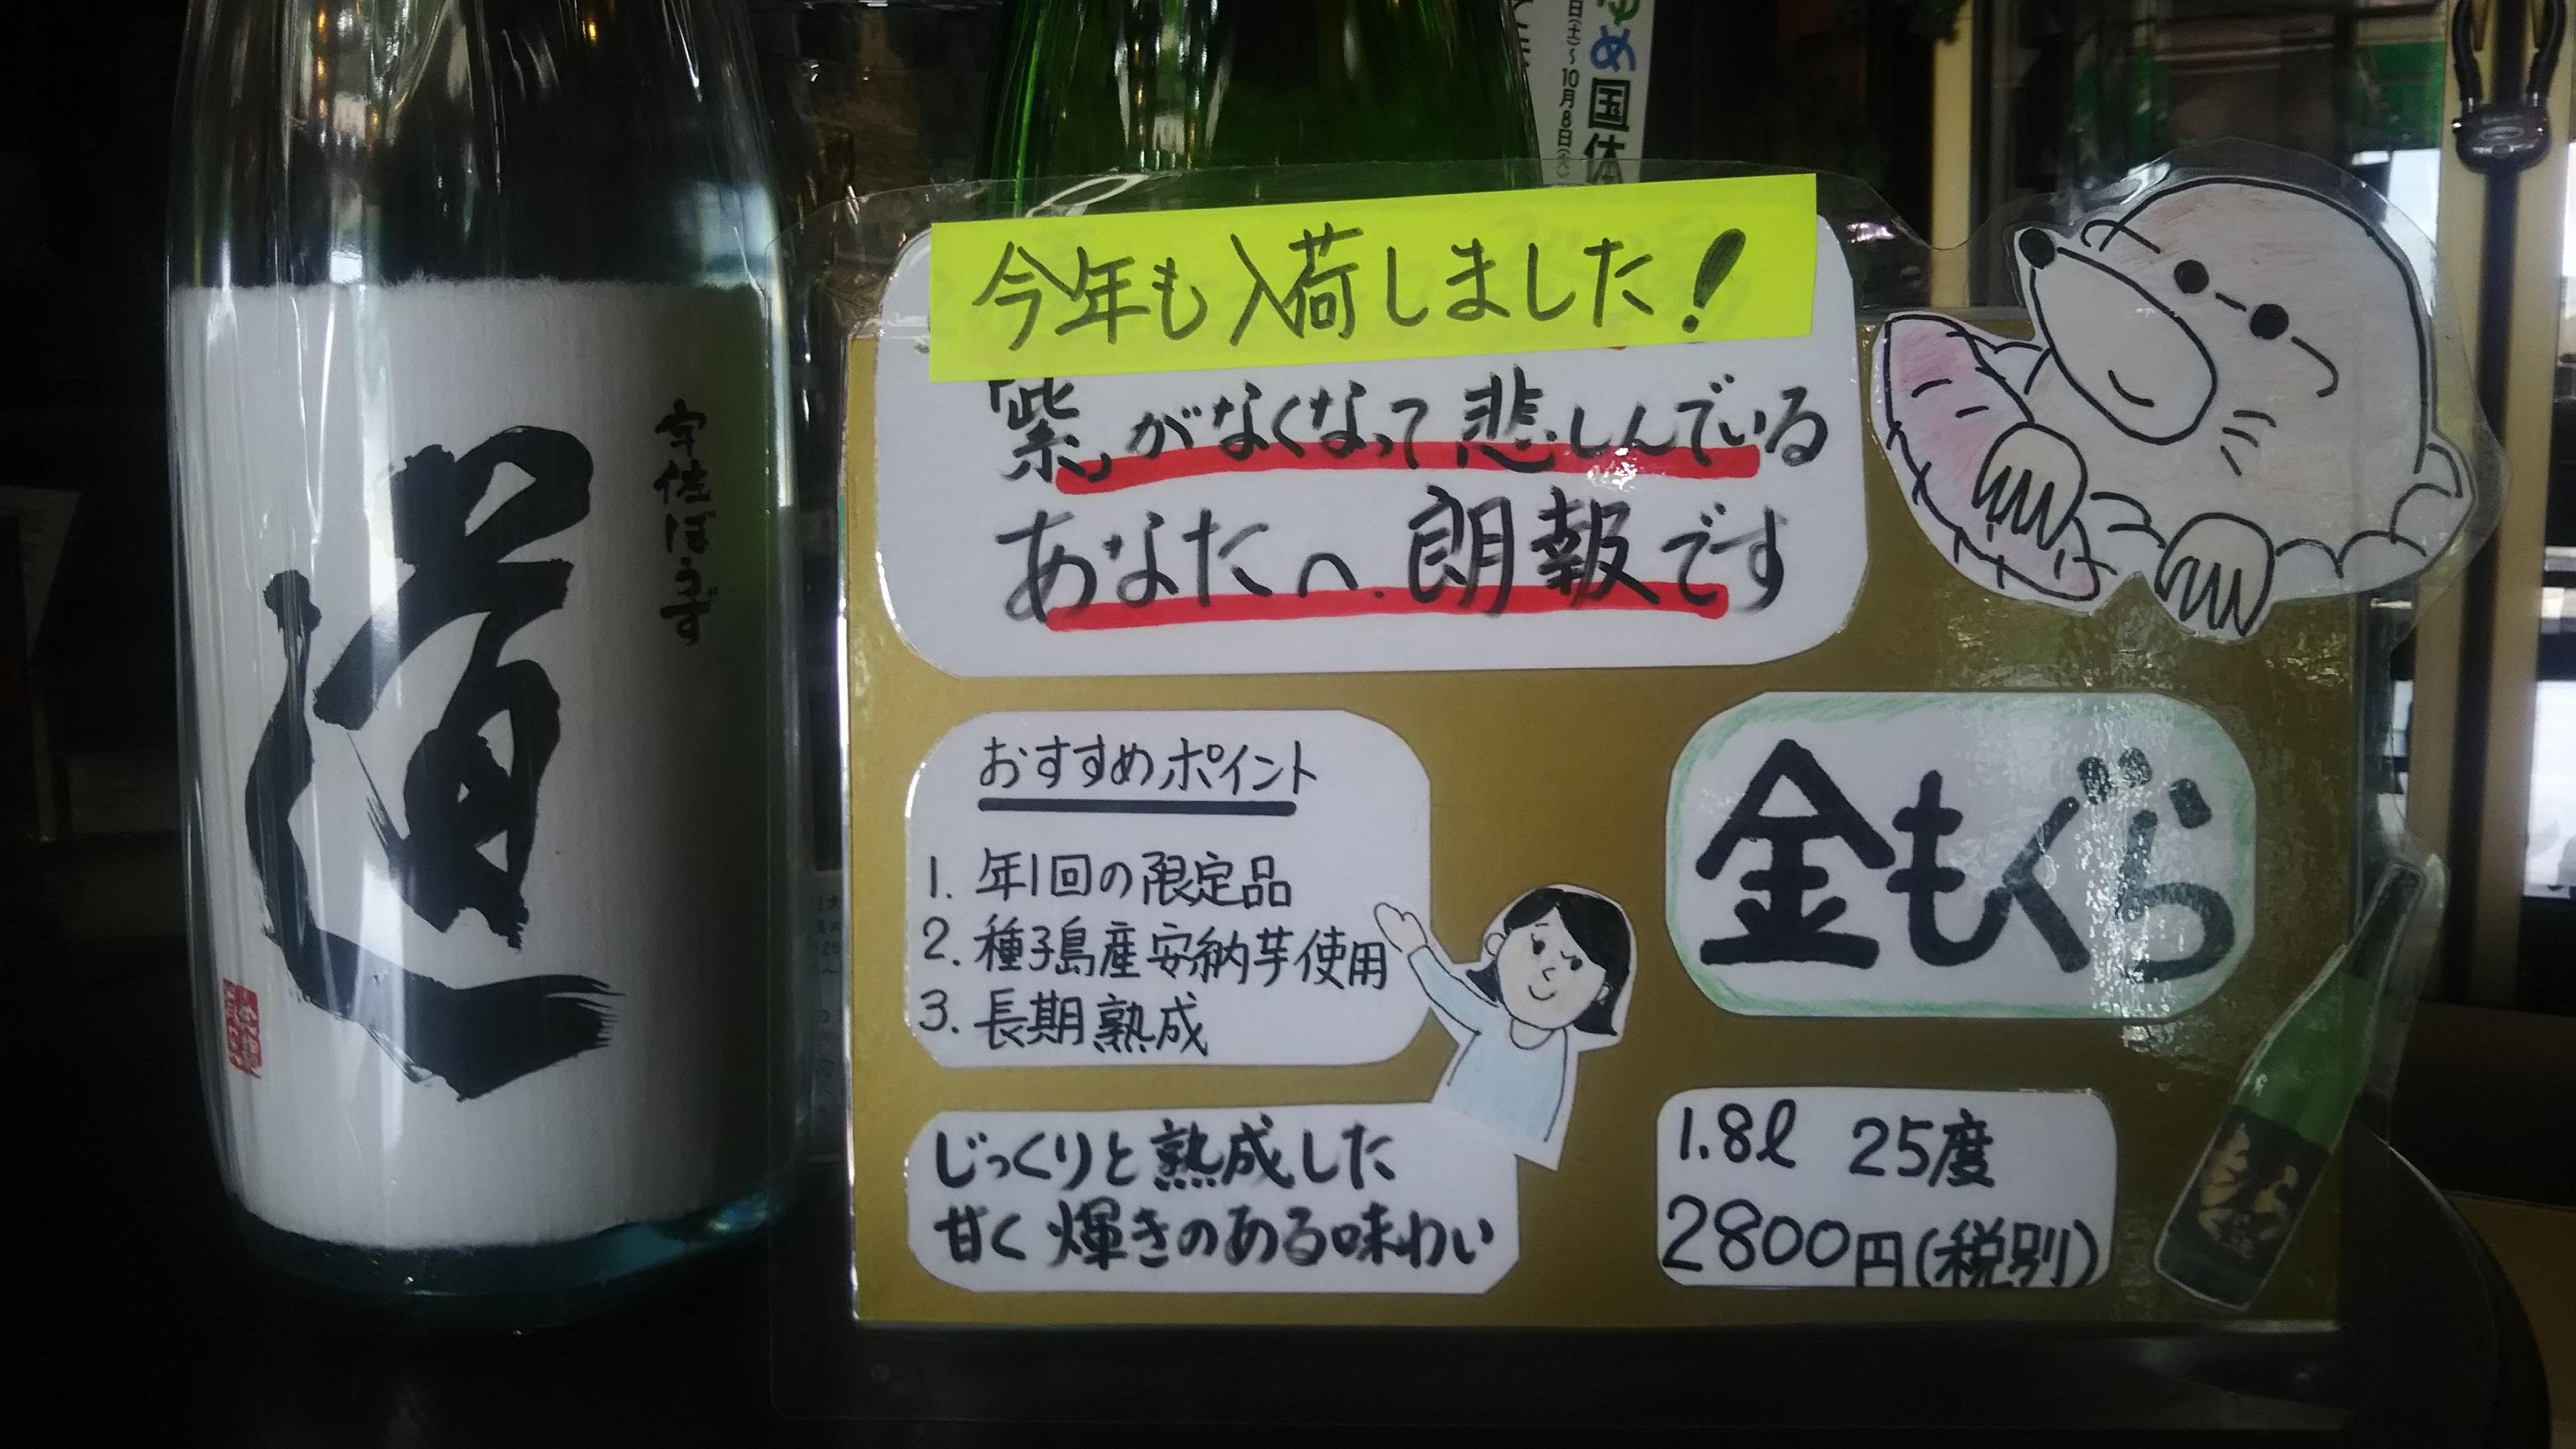 道
宇佐ぼうず
ゆめ国体
日(土)～10月8日(火)
今年も入荷しました!
「紫」がなくなって悲しんでいる
あなたへ.朗報です
おすすめポイント
1. 年1回の限定品
2. 種子島産安納芋使用
3. 長期熟成
じっくりと熟成した
甘く輝きのある味わい
金もぐら
1.8ℓ 25度
2800円(税別)